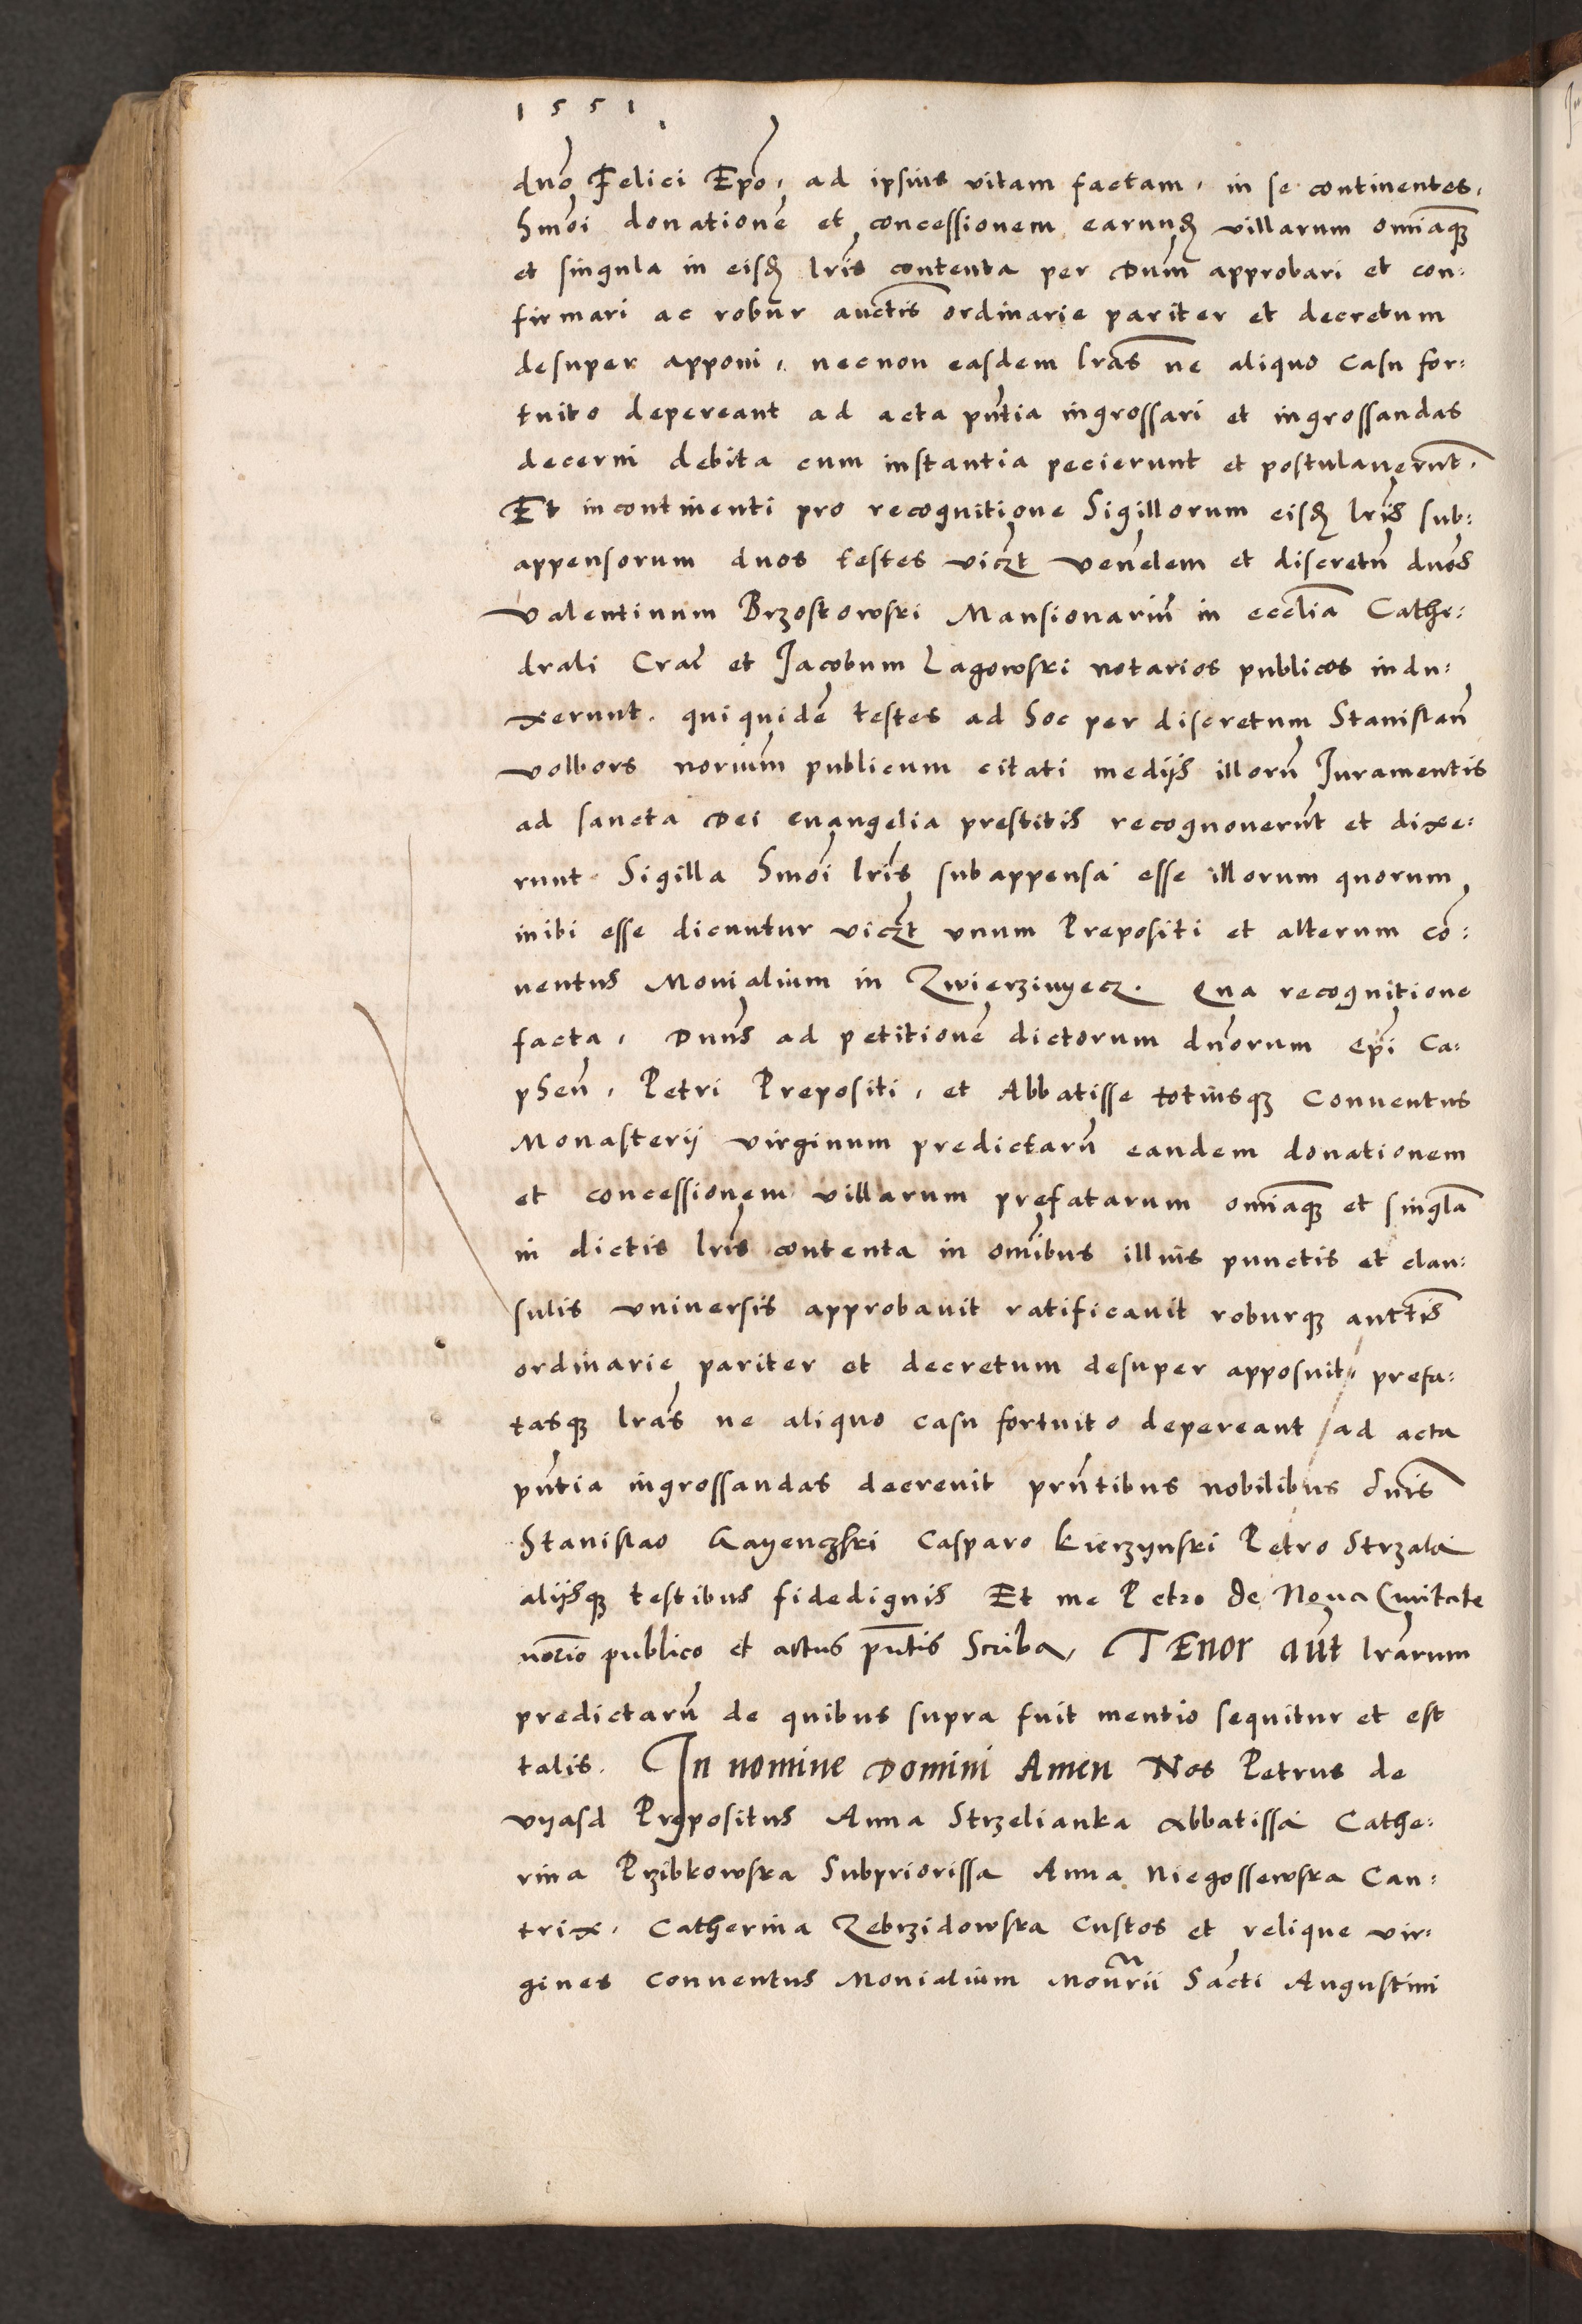 1551
dno Felici Epo, ad ipsius vitam factam, in se continentes,
hmoi donatione et concessionem earund villarum omiaque
et singula in eisd lris contenta per Dnm approbari et con:
firmari ac robur auctis ordinarie pariter et decretum
desuper apponi, necnon easdem lras ne aliquo casu for:
tuito depereant ad acta pntia ingrossari et ingrossandas
decerni debita cum instantia pecierunt et postulauerunt.
Et incontinenti pro recognitione Sigillorum eisd lris sub:
appensorum duos testes viczt venelem et discretu dnos
valentinum Brzostowski Mansionariu in ecclia Cathe:
drali Crac et Jacobum Lagowski notarios publicos indu:
xerunt. qui quide testes ad hoc per discretum Stanislau
volbors norium publicum citati medijs illoru Juramentis
ad sancta Dei euangelia prestitis recognouerut et dixe:
runt Sigilla hmoi lris subappensa esse illorum quorum
inibi esse dicuntur viczt vnum Prepositi et alterum co:
uentus Monialium in Zwierzinyecz. Qua recognitione
facta, Dnus ad petitione dictorum dnorum Epi Ca:
phen, Petri Prepositi, et Abbatisse totiusque Conuentus
Monasterij virginum predictaru eandem donationem
et concessionem villarum prefatarum omiaque et singla
in dictis lris contenta in omibus illius punctis et clau:
sulis vniversis approbauit ratificauit roburque auctis
ordinarie pariter et decretum desuper apposuit, prefa:
tasque lras ne aliquo casu fortuito depereant ad acta
pntia ingrossandas decreuit prntibus nobilibus dnis
Stanislao Gayenczki Casparo Kierzynski Petro Strzala
alijsque testibus fidedignis Et me Petro de Noua Ciuitate
norio publico et actus pntis Scriba, TEnor aut lrarum
predictaru de quibus supra fuit mentio sequitur et est
talis. In nomine Domini Amen Nos Petrus de
vyasd Prepositus Anna Strzelianka Abbatissa Cathe:
rina Przibkowska Subpriorissa Anna Niegossewska Can:
trix. Catherina Zebrzidowska Custos et relique vir:
gines Conuentus Monialium Monrii Sacti Augustini